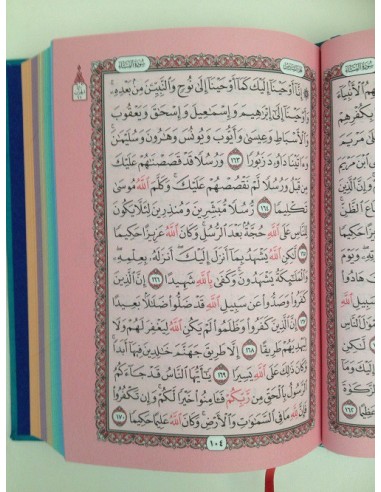 سورة النساء
الجزء السادس
إنا أوحينا إليك كما أوحينا إلى نوح والنبيين من بعده
وأوحينا إلى إبراهيم وإسمعيل وإسحق ويعقوب
والأسباط وعيسى وأيوب ويونس وهرون وسليمن
وءاتينا داوود زبورا ١٦٣ ورسلا قد قصصنهم عليك
من قبل ورسلا لم نقصصهم عليك وكلم الله موسى
تكليما ١٦٤ رسلا مبشرين ومنذرين لئلا يكون
للناس على الله حجة بعد الرسل وكان الله عزيزا حكيما
١٦٥ لكن الله يشهد بما أنزل إليك أنزله بعلمه
والملئكة يشهدون وكفى بالله شهيدا ١٦٦ إن الذين
كفروا وصدوا عن سبيل الله قد ضلوا ضللا بعيدا
١٦٧ إن الذين كفروا وظلموا لم يكن الله ليغفر لهم ولا
ليهديهم طريقا ١٦٨ إلا طريق جهنم خلدين فيها أبدا
وكان ذلك على الله يسيرا ١٦٩ يأيها الناس قد جاءكم
الرسول بالحق من ربكم فءامنوا خيرا لكم وإن تكفروا
فإن لله ما في السموت والأرض وكان الله عليما حكيما ١٧٠
١٠٤